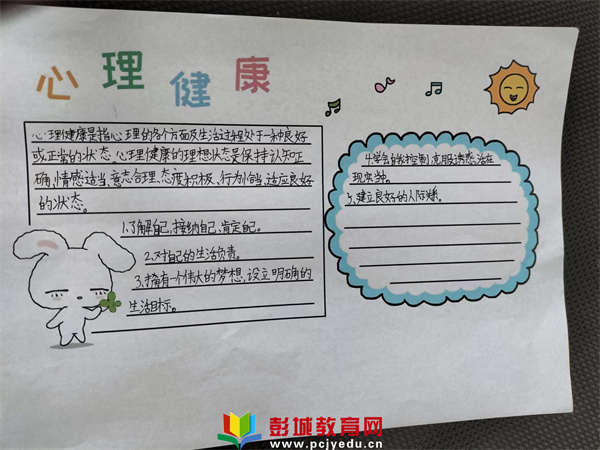 心理健康
心理健康是指心理的各个方面及生活过程处于一种良好
或正常的状态。心理健康的理想状态是保持认知正
确,情感适当、意志合理、态度积极、行为恰当、适应良好
的状态。
1.了解自己,接纳自己、肯定自己。
2.对自己的生活负责。
3.拥有一个伟大的梦想,设立明确的
生活目标。
4.学会自我控制,克服诱惑,活在
现实中。
5.建立良好的人际关系。
彭城教育网
www.pcjyedu.cn